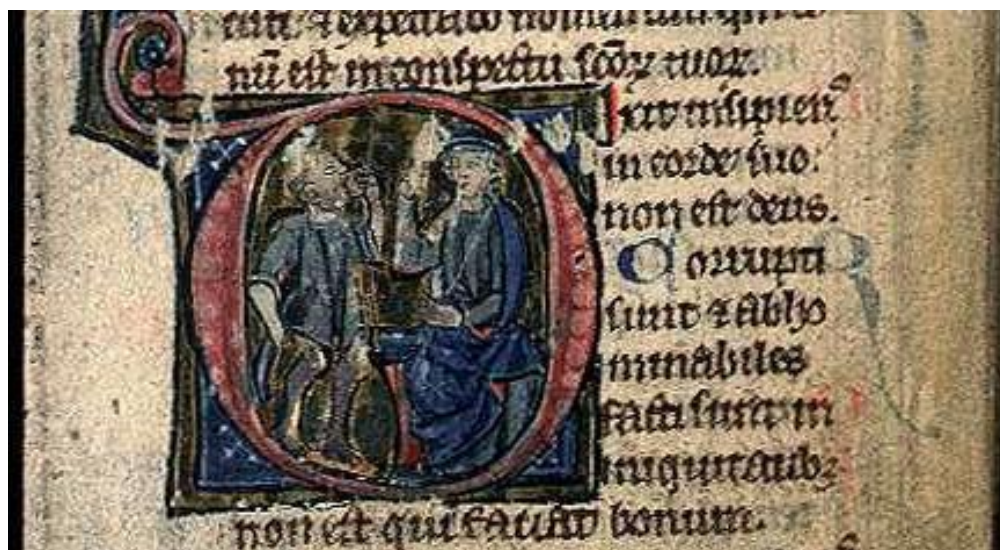 ⁊ expectabo nomen tuum
nū est in conspectu scōꝝ tuoꝝ.
Dixit insipiens
in corde suo:
non est deus.
Corrupti
sunt ⁊ abho
minabiles
facti sunt in
iniquitatibꝫ
non est qui faciat bonum.